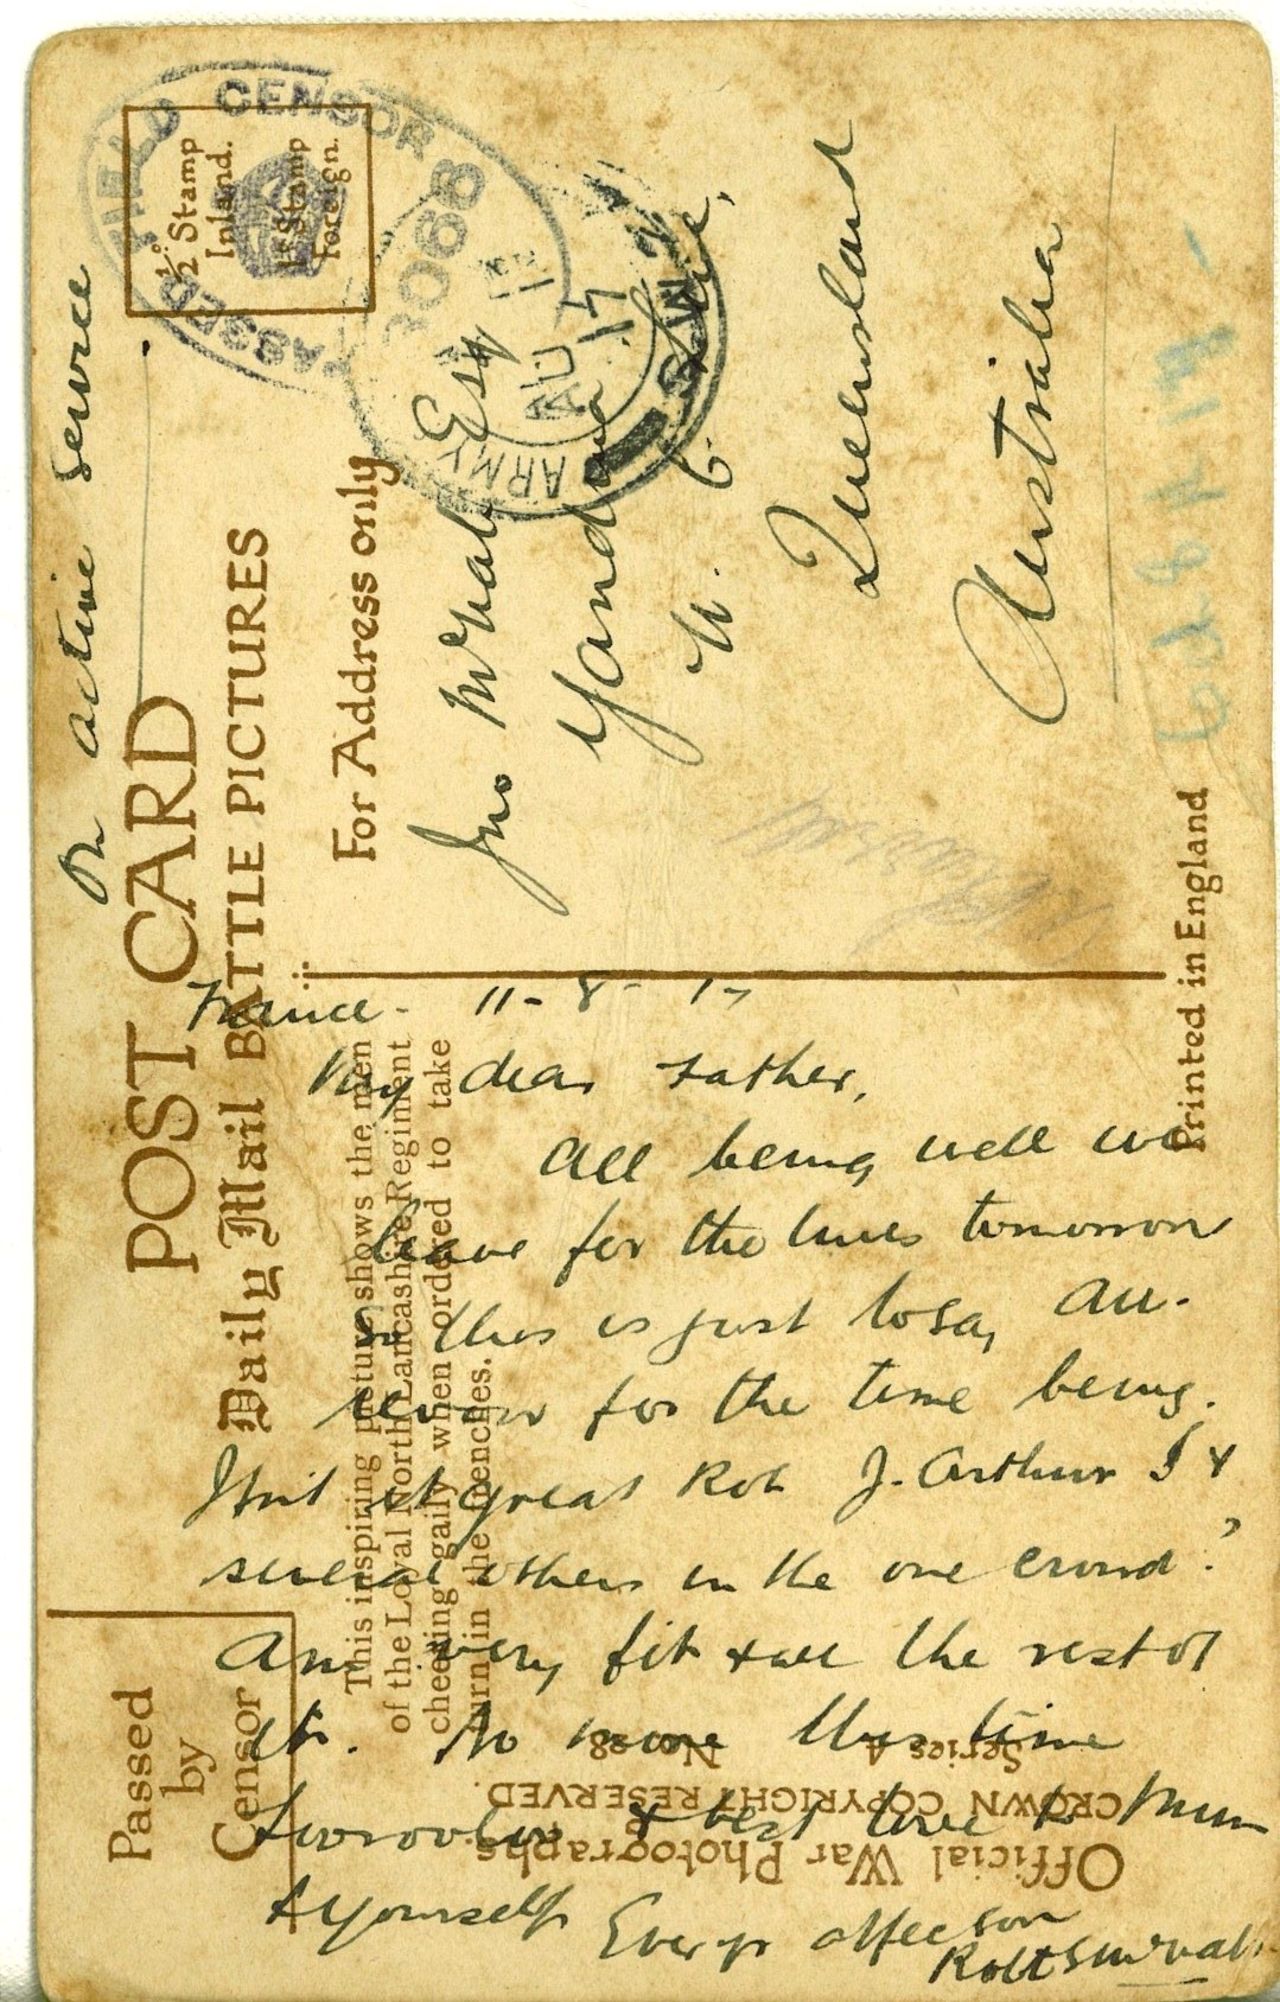 On active service
POST CARD
Daily Mail BATTLE PICTURES
½D. Stamp
Inland.
1D. Stamp
Foreign.
PASSED FIELD CENSOR
3068
ARMY
AU
17
For Address only
Jno
Esq
Yandina
N. C. Line.
Queensland
Australia
This inspiring picture shows the men
of the Loyal North Lancashire Regiment
cheering gaily when ordered to take
turn in the trenches.
Passed
by
Censor
Printed in England
Official War Photographs.
CROWN COPYRIGHT RESERVED.
Series A No. 28
France - 11-8-17
My dear Father,
All being well we
leave for the lines tomorrow
so this is just to say Au-
revoir for the time being.
Isnt it great Rob J. Arthur I &
several others in the one crowd?
Am very fit & all the rest of
it. No more this time
& best love to Mum
& yourself
Ever yr affec son
Robt S